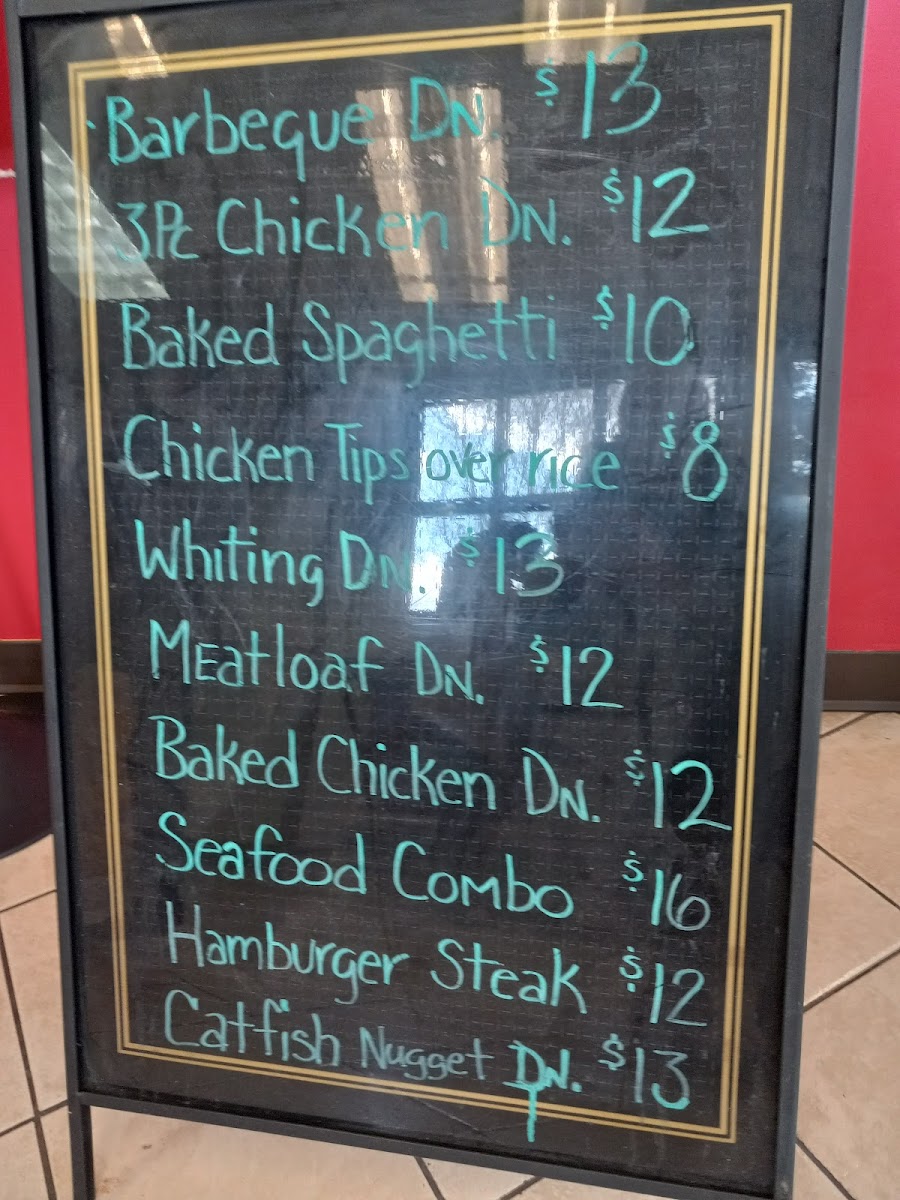 Barbeque DN. $13
3Pc Chicken DN. $12
Baked Spaghetti $10
Chicken Tips over rice $8
Whiting DN. $13
Meatloaf DN. $12
Baked Chicken DN. $12
Seafood Combo $16
Hamburger Steak $12
Catfish Nugget DN. $13